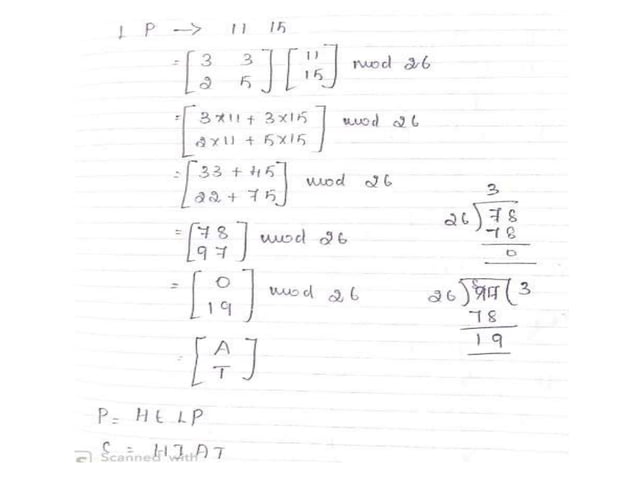 L P → 11 15
= [3 3 2 5] [11 15] mod 26
= [3×11 + 3×15 2×11 + 5×15] mod 26
= [33 + 45 22 + 75] mod 26
= [78 97] mod 26
= [0 19] mod 26
= [A T]
3
26) 78
78
0
26) (3
78
19
P = HELP
= HIAT
Scanned with